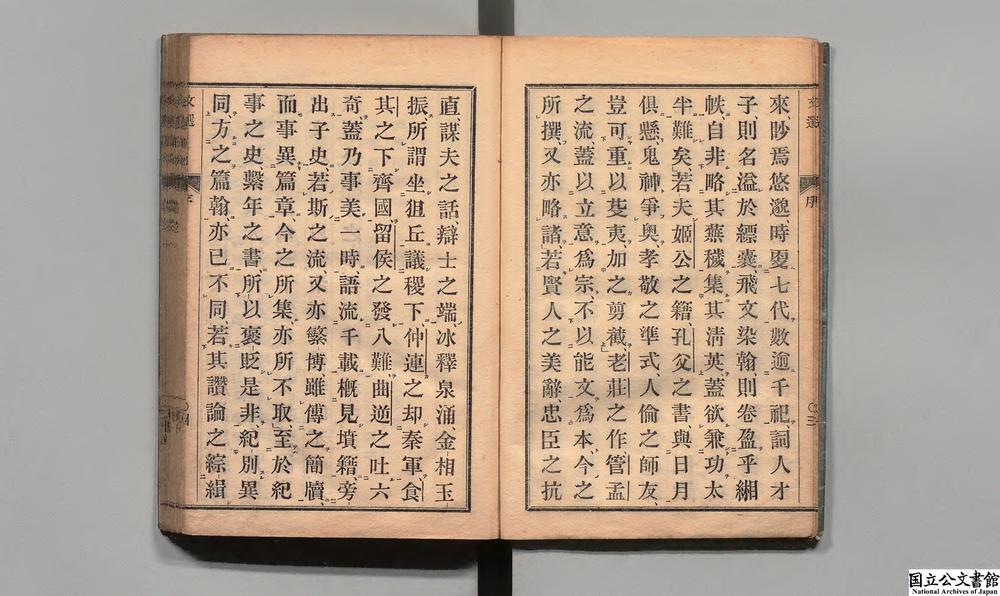 來眇焉悠邈時更七代數逾千祀詞人才
子則名溢於縹囊飛文染翰則卷盈乎緗
帙自非略其蕪穢集其淸英蓋欲兼功太
半難矣若夫姬公之籍孔父之書與日月
俱懸鬼神爭奧孝敬之準式人倫之師友
豈可重以芟夷加之剪截老莊之作管孟
之流蓋以立意爲宗不以能文爲本今之
所撰又亦略諸若賢人之美辭忠臣之抗
直謀夫之話辯士之端冰釋泉涌金相玉
振所謂坐狙丘議稷下仲連之却秦軍食
其之下齊國留侯之發八難曲逆之吐六
奇蓋乃事美一時語流千載槪見墳籍旁
出子史若斯之流又亦繁博雖傳之簡牘
而事異篇章今之所集亦所不取至於紀
事之史繫年之書所以褒貶是非紀別異
同方之篇翰亦已不同若其讚論之綜緝
文選
文選
序
国立公文書館
National Archives of Japan